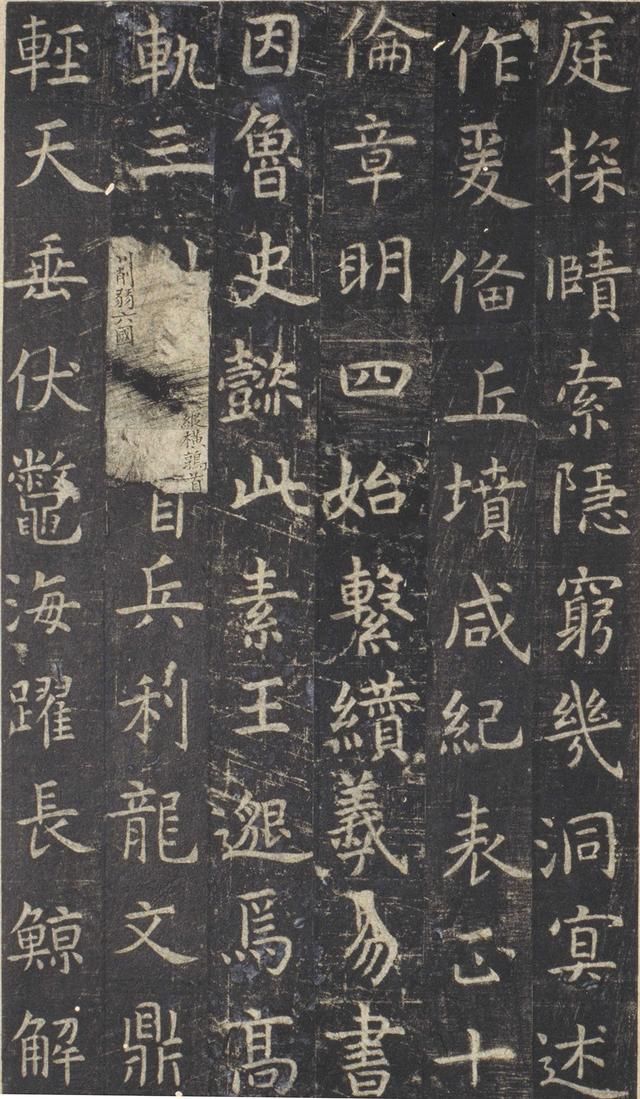 庭探賾索隱窮幾洞冥述
作爰俻丘墳咸紀表正十
倫章明四始繫纘羲易書
因魯史懿此素王邈焉高
軌三
川削弱六國
縱橫鶉首
首兵利龍文鼎
輕天垂伏鼈海躍長鯨解